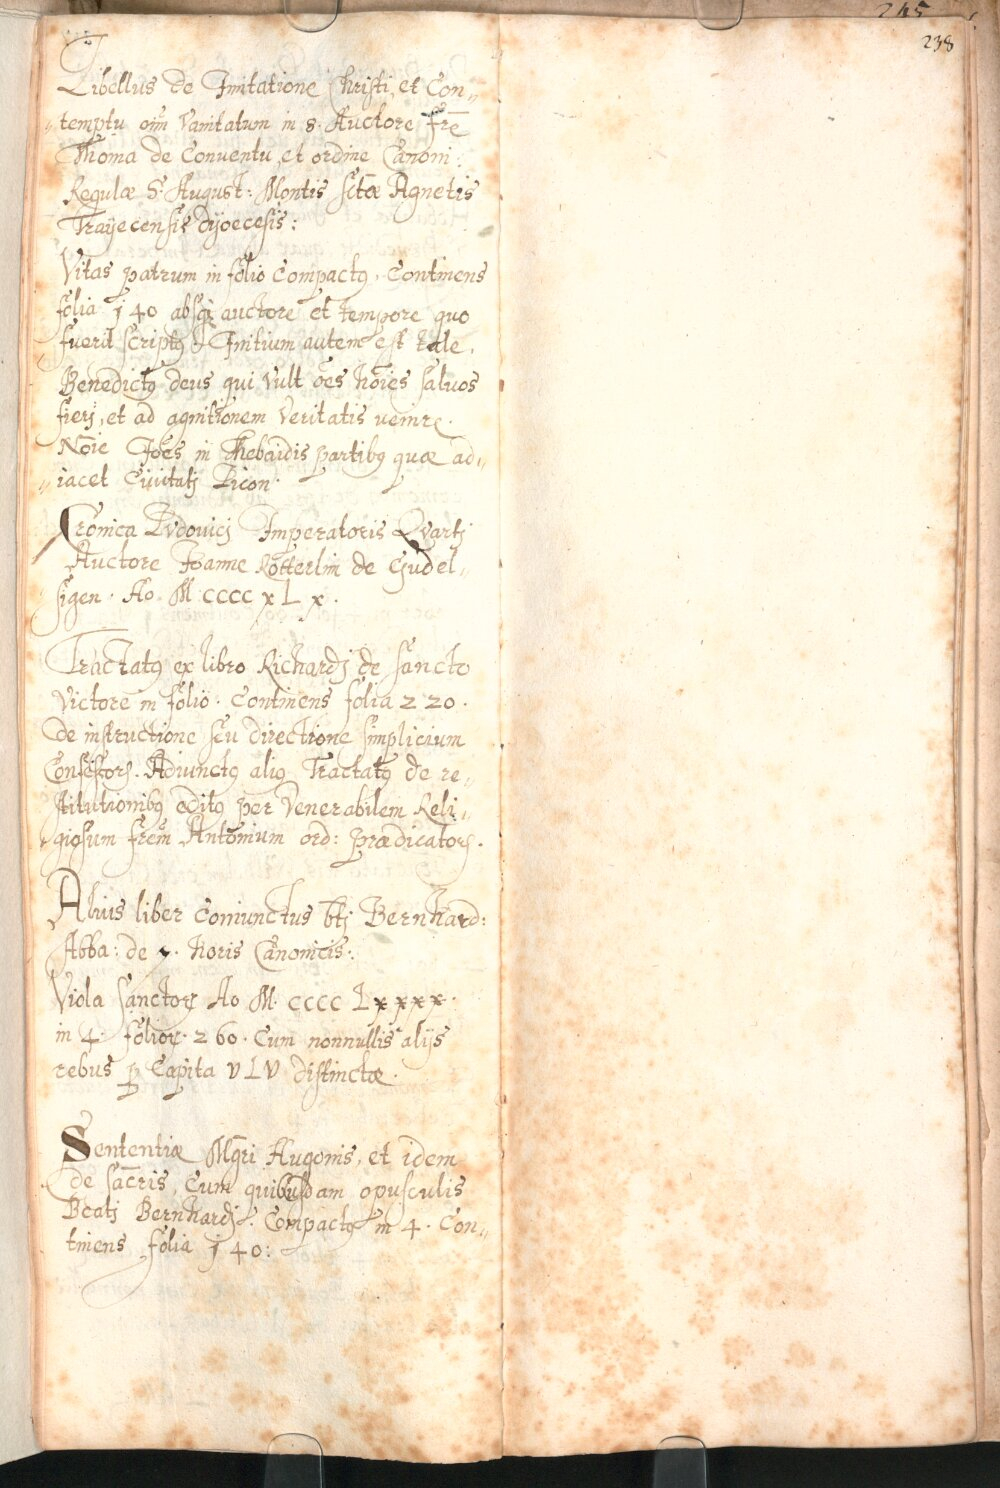 245
238
Libellus de Imitatione Christi, et Con„
„temptu oīm Vanitatum in 8. Auctore Frē
Thoma de Conventu et ordine Canoni:
Regulæ S. August: Montis Sctæ Agnetis
Trayecensis dyoecesis:
Vitas patrum in folio Compactꝰ. Continens
folia 140 absqꝫ auctore et tempore quo
fuerit scriptꝰ. Initium autem est tale.
Benedictꝰ deus qui Vult oēs hōies salvos
fierj, et ad agnitionem Veritatis venire.
Nōie Joēs in Thebaidis partibꝰ quæ ad„
„iacet Civitatj Licon.
Cronica Lvdovicj Imperatoris Qvartj
Auctore Joanne
sigen. Ao. M CCCC x L x.
Tractatꝰ ex libro Richardj de Sancto
Victore in folio. Continens folia 220.
de instructione seu directione simplicium
Confessorꝝ. Adiunctꝰ aliꝰ Tractatꝰ de re„
stitutionibꝰ editꝰ per Venerabilem Reli„
giosum frēm Antonium ord: prædicatorꝝ.
Alius liber Coniunctus btj Bernhard:
Abba: de 7. horis Canonicis.
Viola Sanctorꝝ Ao M. CCCC Lxxxx.
in 4. folior. 260. Cum nonnullis alijs
rebus ꝑ Capita VLV distinctæ.
Sententiæ Mgri Hugonis, et idem
de sacris, Cum quibusdam opusculis
Beatj Bernhardj. Compactꝰ in 4. Con„
tinens folia 140: